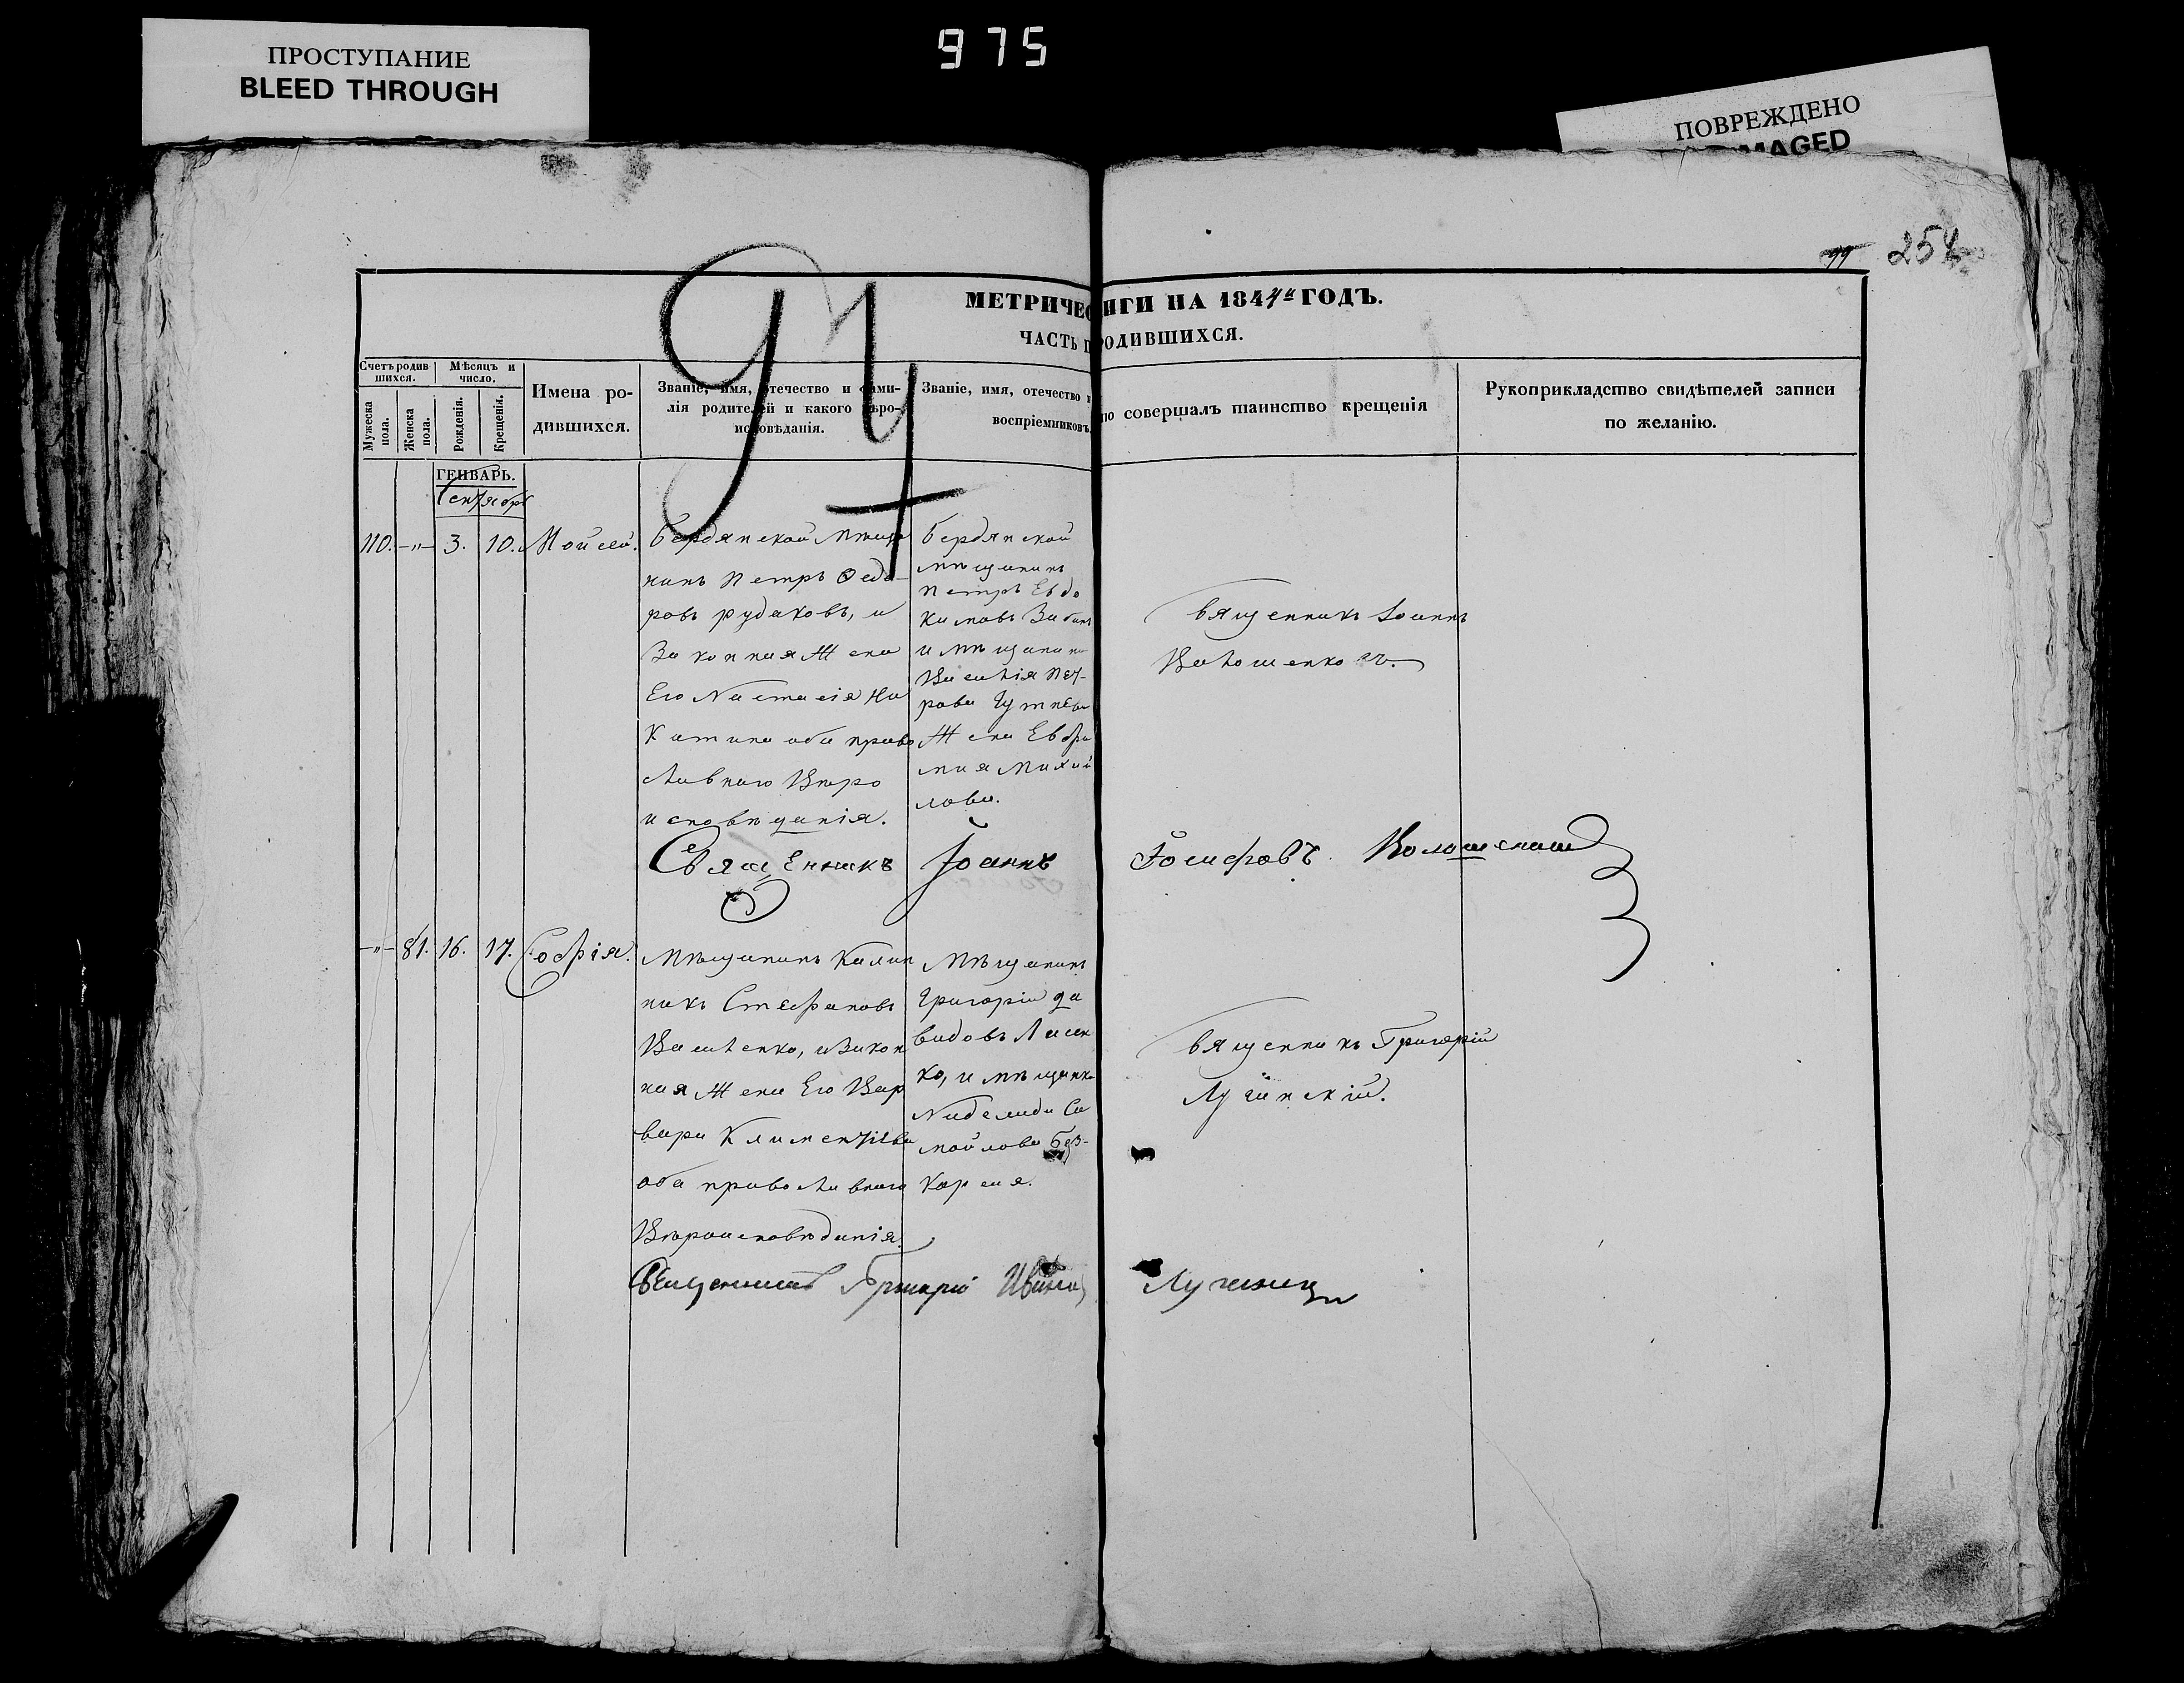 ПРОСТУПАНИЕ
BLEED THROUGH
975
ПОВРЕЖДЕНО
MAGED
99 254
МЕТРИЧЕС ИГИ НА 1844й ГОДЪ.
ЧАСТЬ П РОДИВШИХСЯ.
Счетъ родив
шихся.
Мужеска
пола.
Женска
пола.
Мѣсяцъ и
число.
Рожденія.
Крещенія.
Имена ро-
дившихся.
Званіе, имя, отечество и фами-
лія родителей и какого вѣро-
исповѣданія.
Званіе, имя, отечество и
воспріемниковъ.
то совершалъ таинство крещенія
Рукоприкладство свидѣтелей записи
по желанію.
ГЕНВАРЬ.
Сентябрь
110. -"- 3. 10. Мойсей.
Бердянской мѣща
нинъ Петръ Ѳедо-
ровъ рудаковъ, и
Законная Жена
Его Настасія Ни
китина оба право
славнаго Вѣро
исповѣданія.
Бердянской
мѣщанинъ
Петръ Евдо
кимовъ
и мѣщанина
Василія Пет-
рова
Жена Евфи
мия Михай
лова.
вященникъ Іоаннъ
Священникъ Іоаннъ Іосифовъ
-"- 81. 16. 17. Софія.
Мѣщанинъ Калин
никъ Стефановъ
Василенко, и Закон
ная Жена Его Вар
вара Климентіева
оба православнаго
Вѣроисповѣданія.
Мѣщанинъ
Григорій Да
видовъ Лисен
ко, и мѣщанка
Са
мойлова Без-
корсая.
вященникъ Григорій
Лучинскій.
Священникъ Григорій Иванов